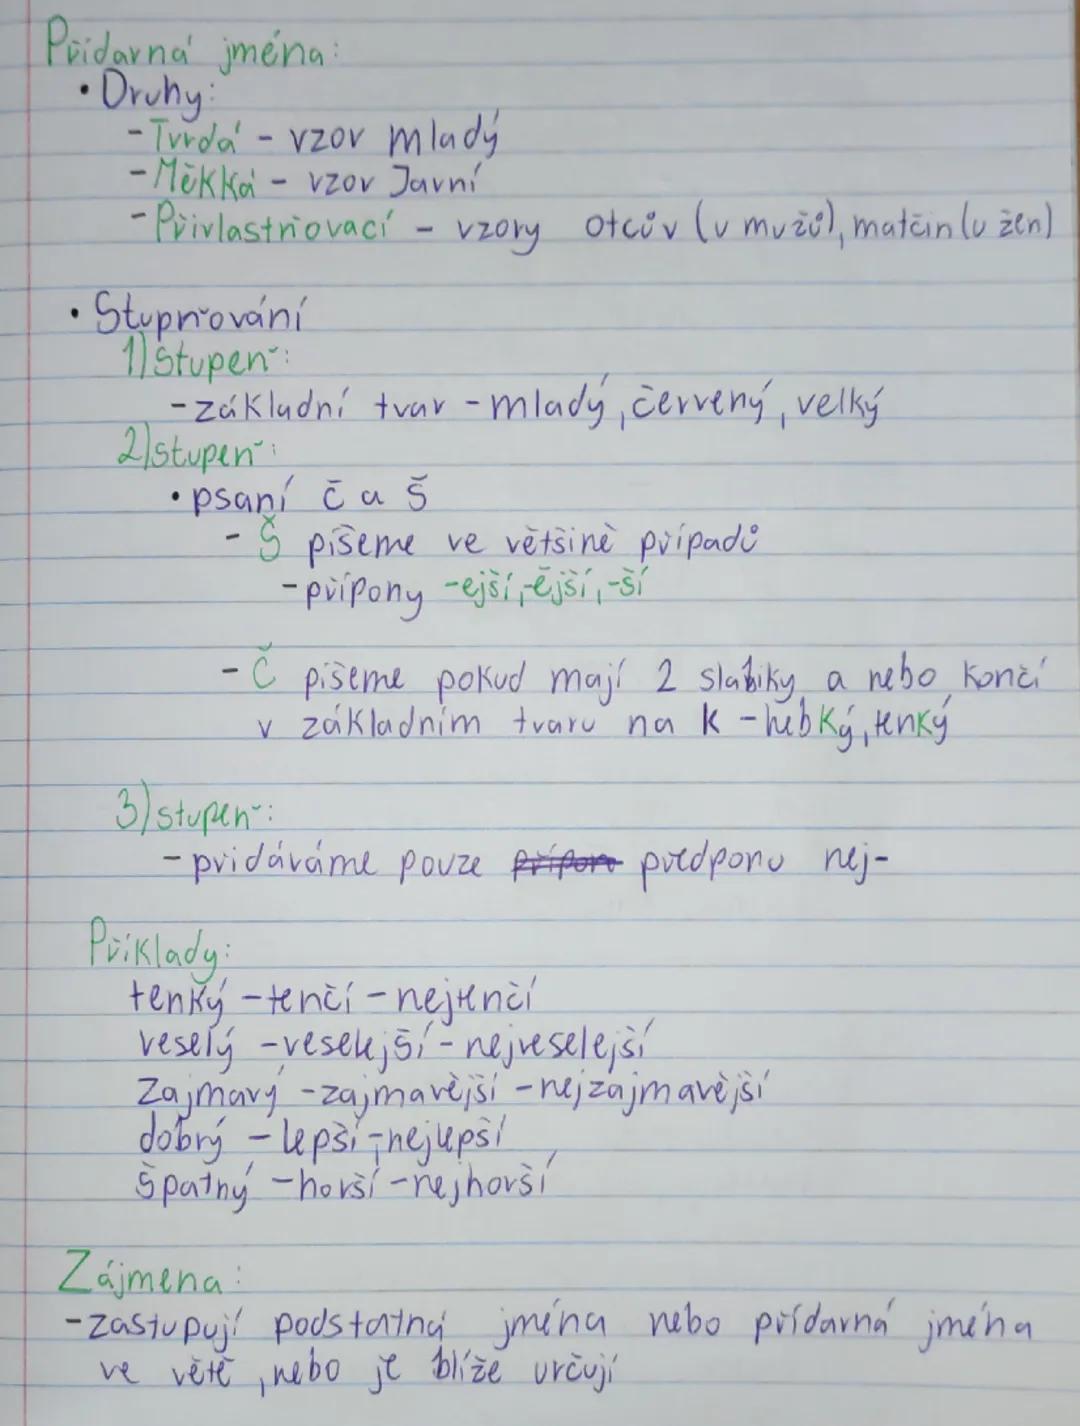 Přídavná jména:
• Druhy:
- Tvrdá - vzor mladý
- Měkká - vzor Jarní
- Přivlastňovací - vzory otcův (u mužů), matčin (u žen)
• Stupňování
1) stupeň:
- základní tvar - mladý, červený, velký
2) stupeň:
• psaní č a š
- Š píšeme ve většině případů
- přípony -ejší, -ější, -ší
- Č píšeme pokud mají 2 slabiky a nebo končí
v základním tvaru na k - hebký, tenký
3) stupeň:
- přidáváme pouze předponu nej-
Příklady:
tenký - tenčí - nejtenčí
veselý - veselejší - nejveselejší
Zajmavý - zajmavější - nejzajmavější
dobrý - lepší - nejlepší
Špatný - horší - nejhorší
Zájmena:
- zastupují podstatná jména nebo přídavná jména
ve větě, nebo je blíže určují